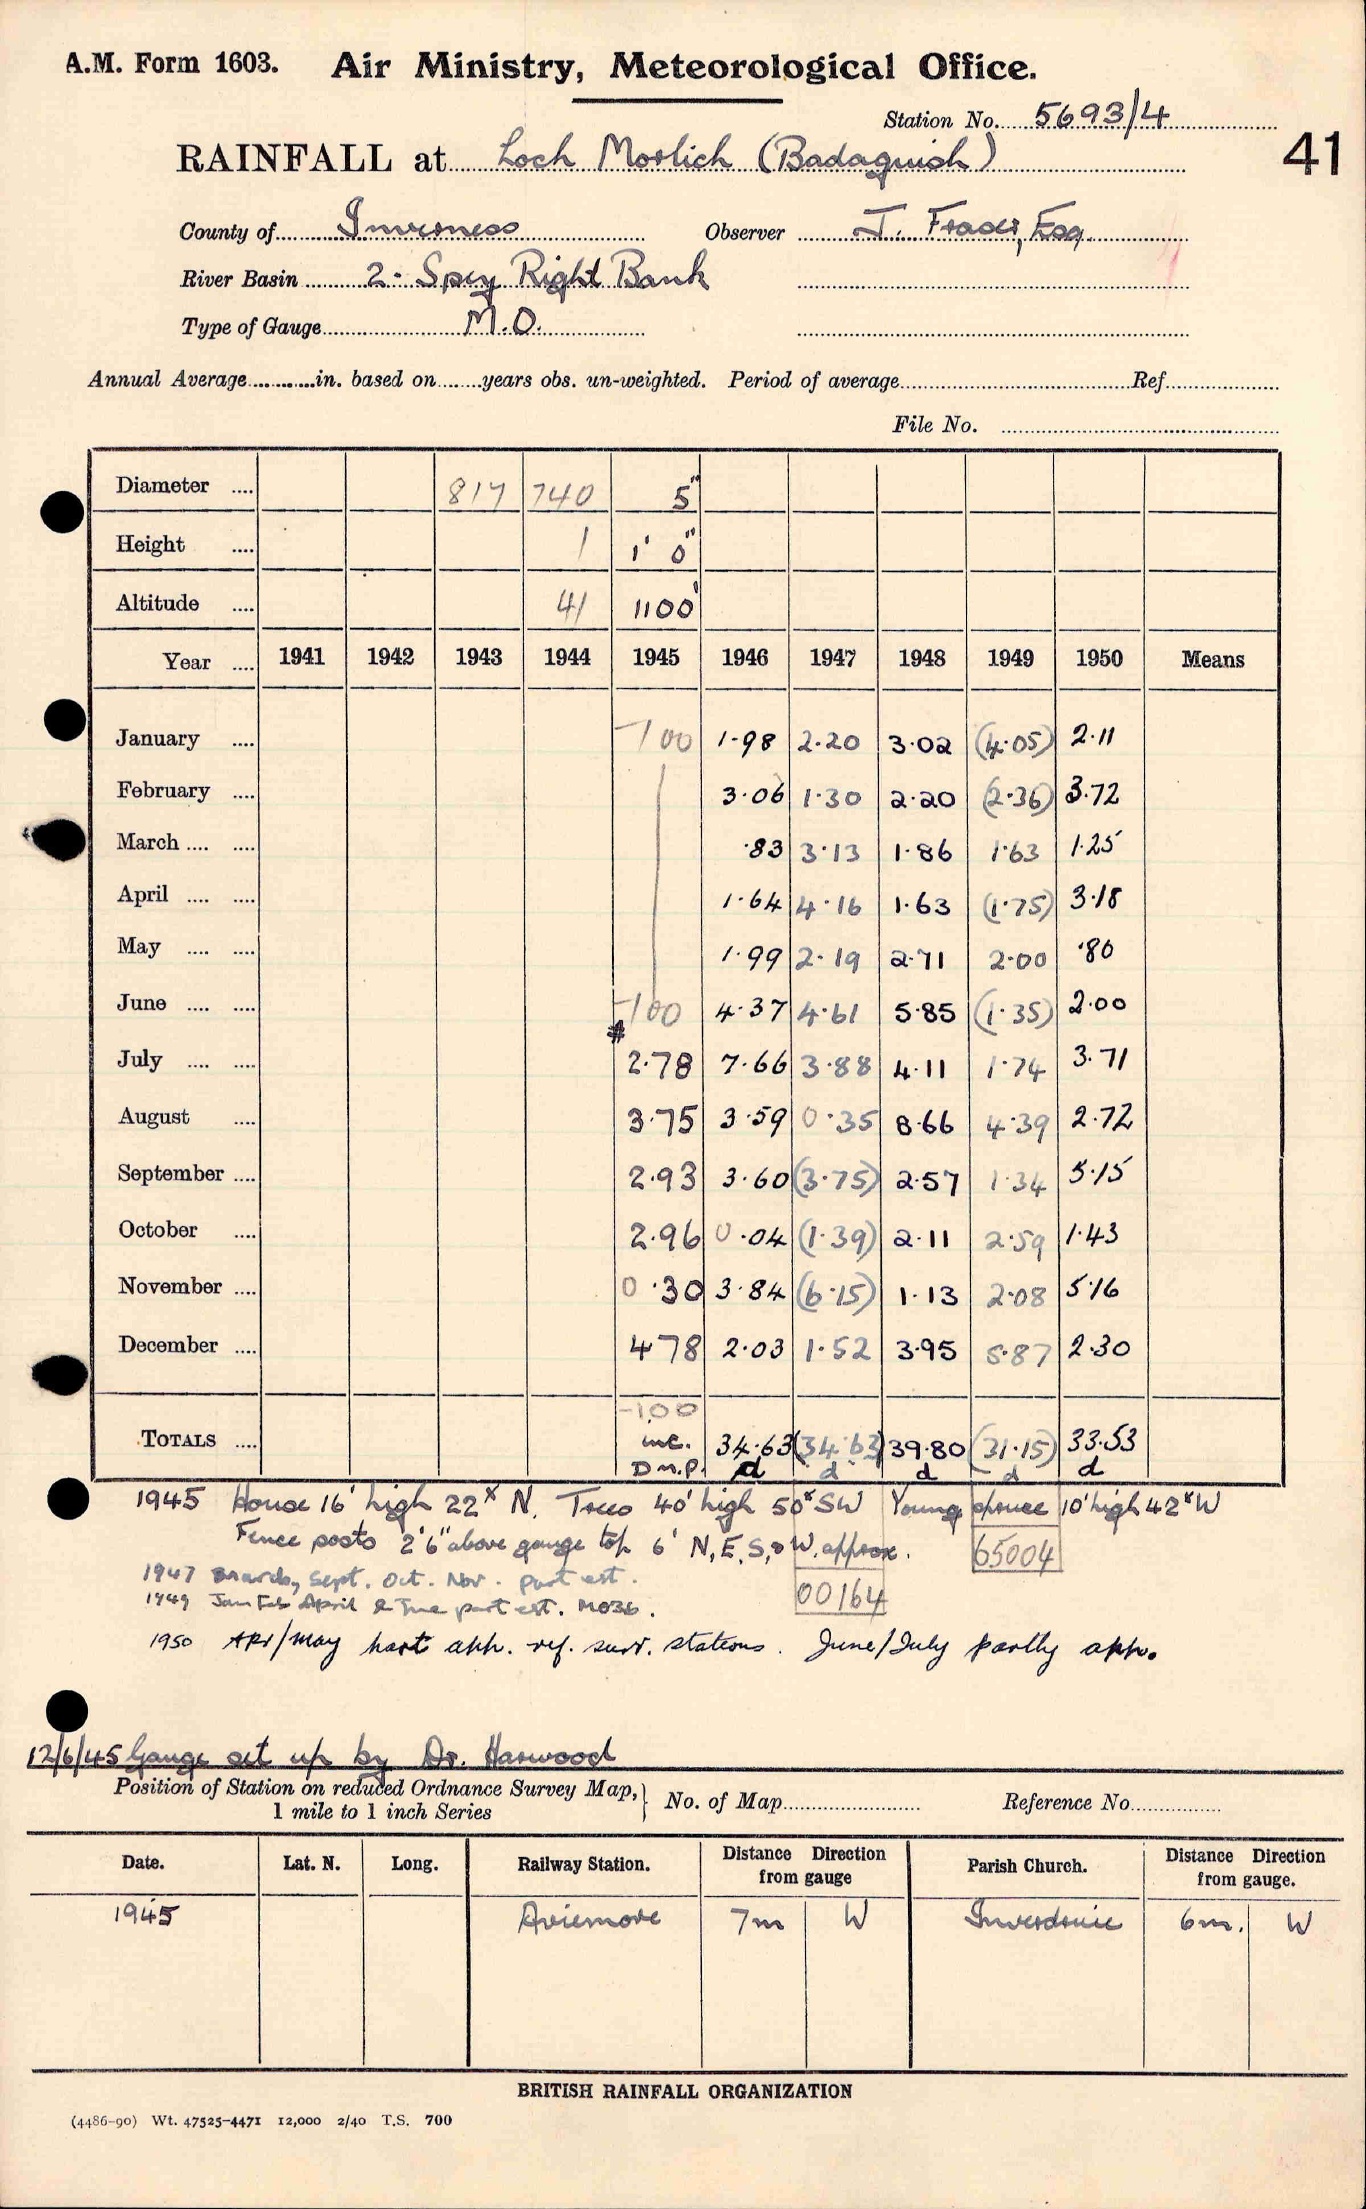 A.M. Form 1603. Air Ministry, Meteorological Office.
Station No. 5693/4
RAINFALL at Loch Morlich (Badaguish) 41
County of Inverness Observer J. Fraser, Esq.
River Basin 2. Spey Right Bank
Type of Gauge M.O.
Annual Average in. based on years obs. un-weighted. Period of average Ref.
File No.
Diameter 817 740 5"
Height 1 1' 0"
Altitude 41 1100'
Year 1941 1942 1943 1944 1945 1946 1947 1948 1949 1950 Means
January -100 1.98 2.20 3.02 (4.05) 2.11
February 3.06 1.30 2.20 (2.36) 3.72
March .83 3.13 1.86 1.63 1.25
April 1.64 4.16 1.63 (1.75) 3.18
May 1.99 2.19 2.71 2.00 .80
June -100 4.37 4.61 5.85 (1.35) 2.00
July 2.78 7.66 3.88 4.11 1.74 3.71
August 3.75 3.59 0.35 8.66 4.39 2.72
September 2.93 3.60 (3.75) 2.57 1.34 5.15
October 2.96 0.04 (1.39) 2.11 2.59 1.43
November 0.30 3.84 (6.15) 1.13 2.08 5.16
December 4.78 2.03 1.52 3.95 5.87 2.30
-100
TOTALS inc. 34.63 (34.63) 39.80 (31.15) 33.53
D.n.p. d d d d d
1945 House 16' high 22x N. Trees 40' high 50x SW Young spruce 10' high 42x W
Fence posts 2'6" above gauge top 6' N, E, S, & W. approx. 65004
1947 Sept. Oct. Nov. part est. 00164
1949 Jan Feb April & June part est. MO3b.
1950 Apr/May part app. ref. surr. stations. June/July partly app.
12/6/45 Gauge set up by Dr. Harwood
Position of Station on reduced Ordnance Survey Map, 1 mile to 1 inch Series No. of Map Reference No.
Date. Lat. N. Long. Railway Station. Distance Direction from gauge Parish Church. Distance Direction from gauge.
1945 Aviemore 7m W Inverdruie 6m. W
BRITISH RAINFALL ORGANIZATION
(4486-90) Wt. 47525-4471 12,000 2/40 T.S. 700